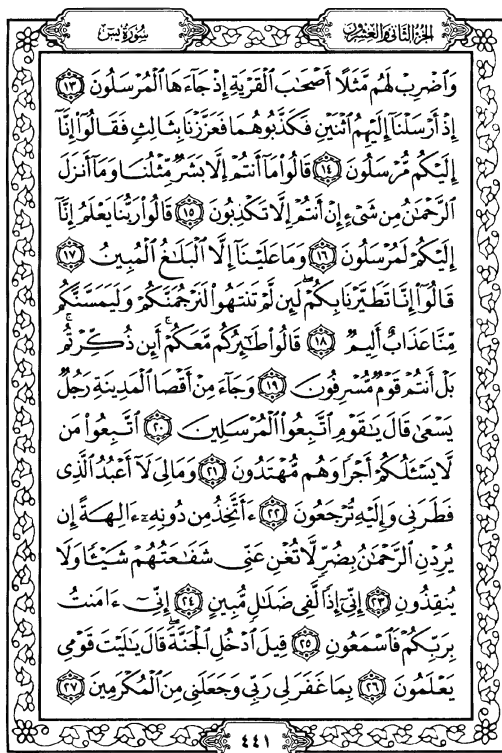 الجزء الثاني والعشرون
سورة يس
وَٱضْرِبْ لَهُم مَّثَلًا أَصْحَٰبَ ٱلْقَرْيَةِ إِذْ جَآءَهَا ٱلْمُرْسَلُونَ ١٣
إِذْ أَرْسَلْنَآ إِلَيْهِمُ ٱثْنَيْنِ فَكَذَّبُوهُمَا فَعَزَّزْنَا بِثَالِثٍ فَقَالُوٓا۟ إِنَّآ
إِلَيْكُم مُّرْسَلُونَ ١٤ قَالُوا۟ مَآ أَنتُمْ إِلَّا بَشَرٌ مِّثْلُنَا وَمَآ أَنزَلَ
ٱلرَّحْمَٰنُ مِن شَىْءٍ إِنْ أَنتُمْ إِلَّا تَكْذِبُونَ ١٥ قَالُوا۟ رَبُّنَا يَعْلَمُ إِنَّآ
إِلَيْكُمْ لَمُرْسَلُونَ ١٦ وَمَا عَلَيْنَآ إِلَّا ٱلْبَلَٰغُ ٱلْمُبِينُ ١٧
قَالُوٓا۟ إِنَّا تَطَيَّرْنَا بِكُمْ ۖ لَئِن لَّمْ تَنتَهُوا۟ لَنَرْجُمَنَّكُمْ وَلَيَمَسَّنَّكُم
مِّنَّا عَذَابٌ أَلِيمٌ ١٨ قَالُوا۟ طَٰٓئِرُكُم مَّعَكُمْ ۚ أَئِن ذُكِّرْتُم ۚ
بَلْ أَنتُمْ قَوْمٌ مُّسْرِفُونَ ١٩ وَجَآءَ مِنْ أَقْصَا ٱلْمَدِينَةِ رَجُلٌ
يَسْعَىٰ قَالَ يَٰقَوْمِ ٱتَّبِعُوا۟ ٱلْمُرْسَلِينَ ٢٠ ٱتَّبِعُوا۟ مَن
لَّا يَسْـَٔلُكُمْ أَجْرًا وَهُم مُّهْتَدُونَ ٢١ وَمَا لِىَ لَآ أَعْبُدُ ٱلَّذِى
فَطَرَنِى وَإِلَيْهِ تُرْجَعُونَ ٢٢ ءَأَتَّخِذُ مِن دُونِهِۦٓ ءَالِهَةً إِن
يُرِدْنِ ٱلرَّحْمَٰنُ بِضُرٍّ لَّا تُغْنِ عَنِّى شَفَٰعَتُهُمْ شَيْـًٔا وَلَا
يُنقِذُونِ ٢٣ إِنِّىٓ إِذًا لَّفِى ضَلَٰلٍ مُّبِينٍ ٢٤ إِنِّىٓ ءَامَنتُ
بِرَبِّكُمْ فَٱسْمَعُونِ ٢٥ قِيلَ ٱدْخُلِ ٱلْجَنَّةَ ۖ قَالَ يَٰلَيْتَ قَوْمِى
يَعْلَمُونَ ٢٦ بِمَا غَفَرَ لِى رَبِّى وَجَعَلَنِى مِنَ ٱلْمُكْرَمِينَ ٢٧
٤٤١